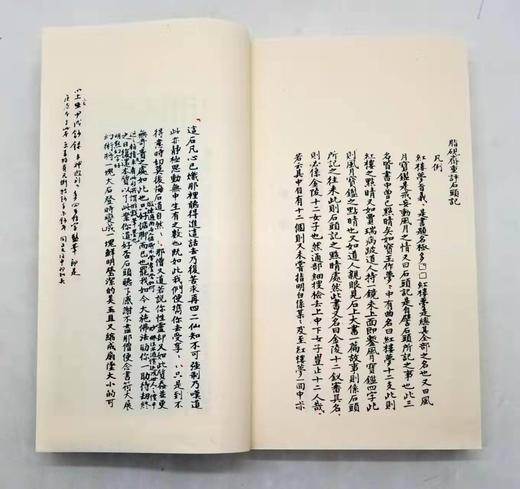 脂硯斋重評石頭記
凡例
紅樓夢旨義 是書題名極多□□紅樓夢是總其全部之名也又曰風
月寶鑑是戒妄動風月之情又曰石頭記是自譬石頭所記之事也此三
名皆書中曾已點睛矣如寶玉作夢夢中有曲名曰紅樓夢十二支此則
紅樓夢之點睛又如賈瑞病跛道人持一鏡來上面即鏨風月寶鑑四字此
則風月寶鑑之點睛又如道人親眼見石上大書一篇故事則係石頭
所記之往來此則石頭記之點睛處然此書又名曰金陵十二釵審其名
則必係金陵十二女子也然通部細搜檢去上中下女子豈止十二人哉
若云其中自有十二個則又未嘗指明白係某某及至紅樓夢一回中亦
這石凡心已熾那裡聽得進這話去乃復苦求再四二仙知不可強制乃嘆道
此亦靜極思動無中生有之數也既如此我們便携你去受享受享只是到不
得意時切莫後悔石道自然自然那僧又道若說你性靈却又如此質蠢並更
無奇貴之處如此也只好踮脚而已也罷我如今大施佛法助你助待劫終
之日復還本質以了此案你道好否石頭聽了感謝不盡那僧便念書符大展
幻術將一塊大石登時變成一塊鮮明瑩潔的美玉且又縮成扇墜大小的可